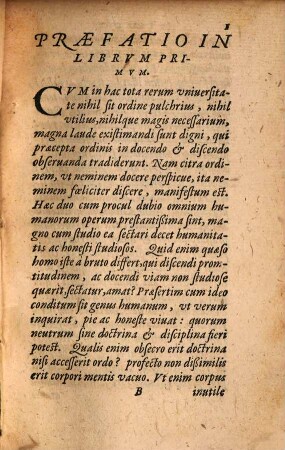 1
PRÆFATIO IN
LIBRVM PRI-
MVM.
CVM in hac tota rerum vniuersita-
te nihil sit ordine pulchrius, nihil
vtilius, nihilque magis necessarium,
magna laude existimandi sunt digni, qui
præcepta ordinis in docendo & discendo
obseruanda tradiderunt. Nam citra ordi-
nem, vt neminem docere perspicue, ita ne-
minem fœliciter discere, manifestum est.
Hæc duo cum procul dubio omnium hu-
manorum operum prestantissima sint, ma-
gno cum studio ea sectari decet humanita-
tis ac honesti studiosos. Quid enim quæso
homo iste à bruto differt, qui discendi pron-
titudinem, ac docendi viam non studiose
quærit, sectatur, amat? Præsertim cum ideo
conditum sit genus humanum, vt verum
inquirat, pie ac honeste viuat: quorum
neutrum sine doctrina & disciplina fieri
potest. Qualis enim obsecro erit doctrina
nisi accesserit ordo? profecto non dißimilis
erit corpori mentis vacuo. Vt enim corpus
B inutile